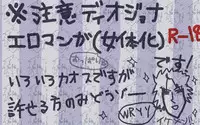 ※注意ディオジョナ
エロマンガ(女体化)
R-18
です!
いろいろカオスですが
許せる方のみどうぞー
WRYY
イケメン!